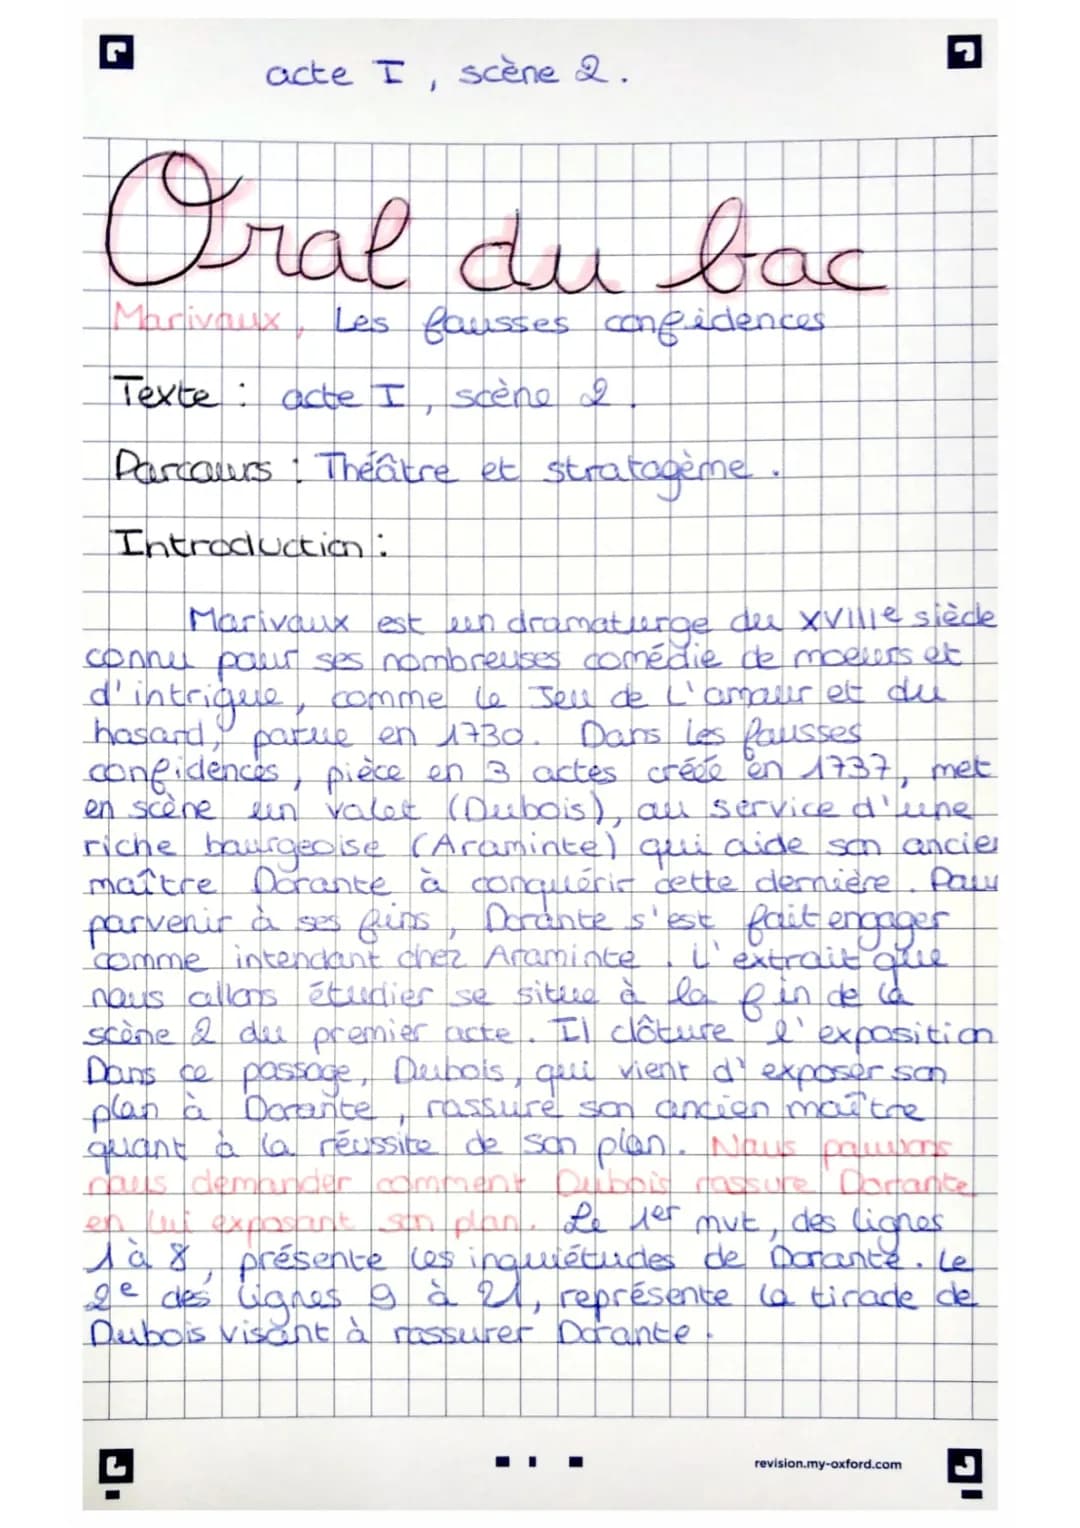 acte I, scène 2.
Oral du bac
Marivaux, Les fausses confidences
Texte : acte I, scène 2.
Parcours : Théâtre et stratagème.
Introduction :
Marivaux est un dramaturge du XVIIIe siècle
connu pour ses nombreuses comédie de moeurs et
d'intrigue, comme le Jeu de l'amour et du
hasard, parue en 1730. Dans les fausses
confidences, pièce en 3 actes créée en 1737, met
en scène un valet (Dubois), au service d'une
riche bourgeoise (Araminte) qui aide son ancien
maître Dorante à conquérir cette dernière. Pour
parvenir à ses fins, Dorante s'est fait engager
comme intendant chez Araminte. L'extrait que
nous allons étudier se situe à la fin de la
scène 2 du premier acte. Il clôture l'exposition
Dans ce passage, Dubois, qui vient d'exposer son
plan à Dorante, rassure son ancien maître
quant à la réussite de son plan. Nous pouvons
nous demander comment Dubois rassure Dorante
en lui exposant son plan. Le 1er mvt, des lignes
1 à 8, présente les inquiétudes de Dorante. Le
2e des lignes 9 à 21, représente la tirade de
Dubois visant à rassurer Dorante.
revision.my-oxford.com